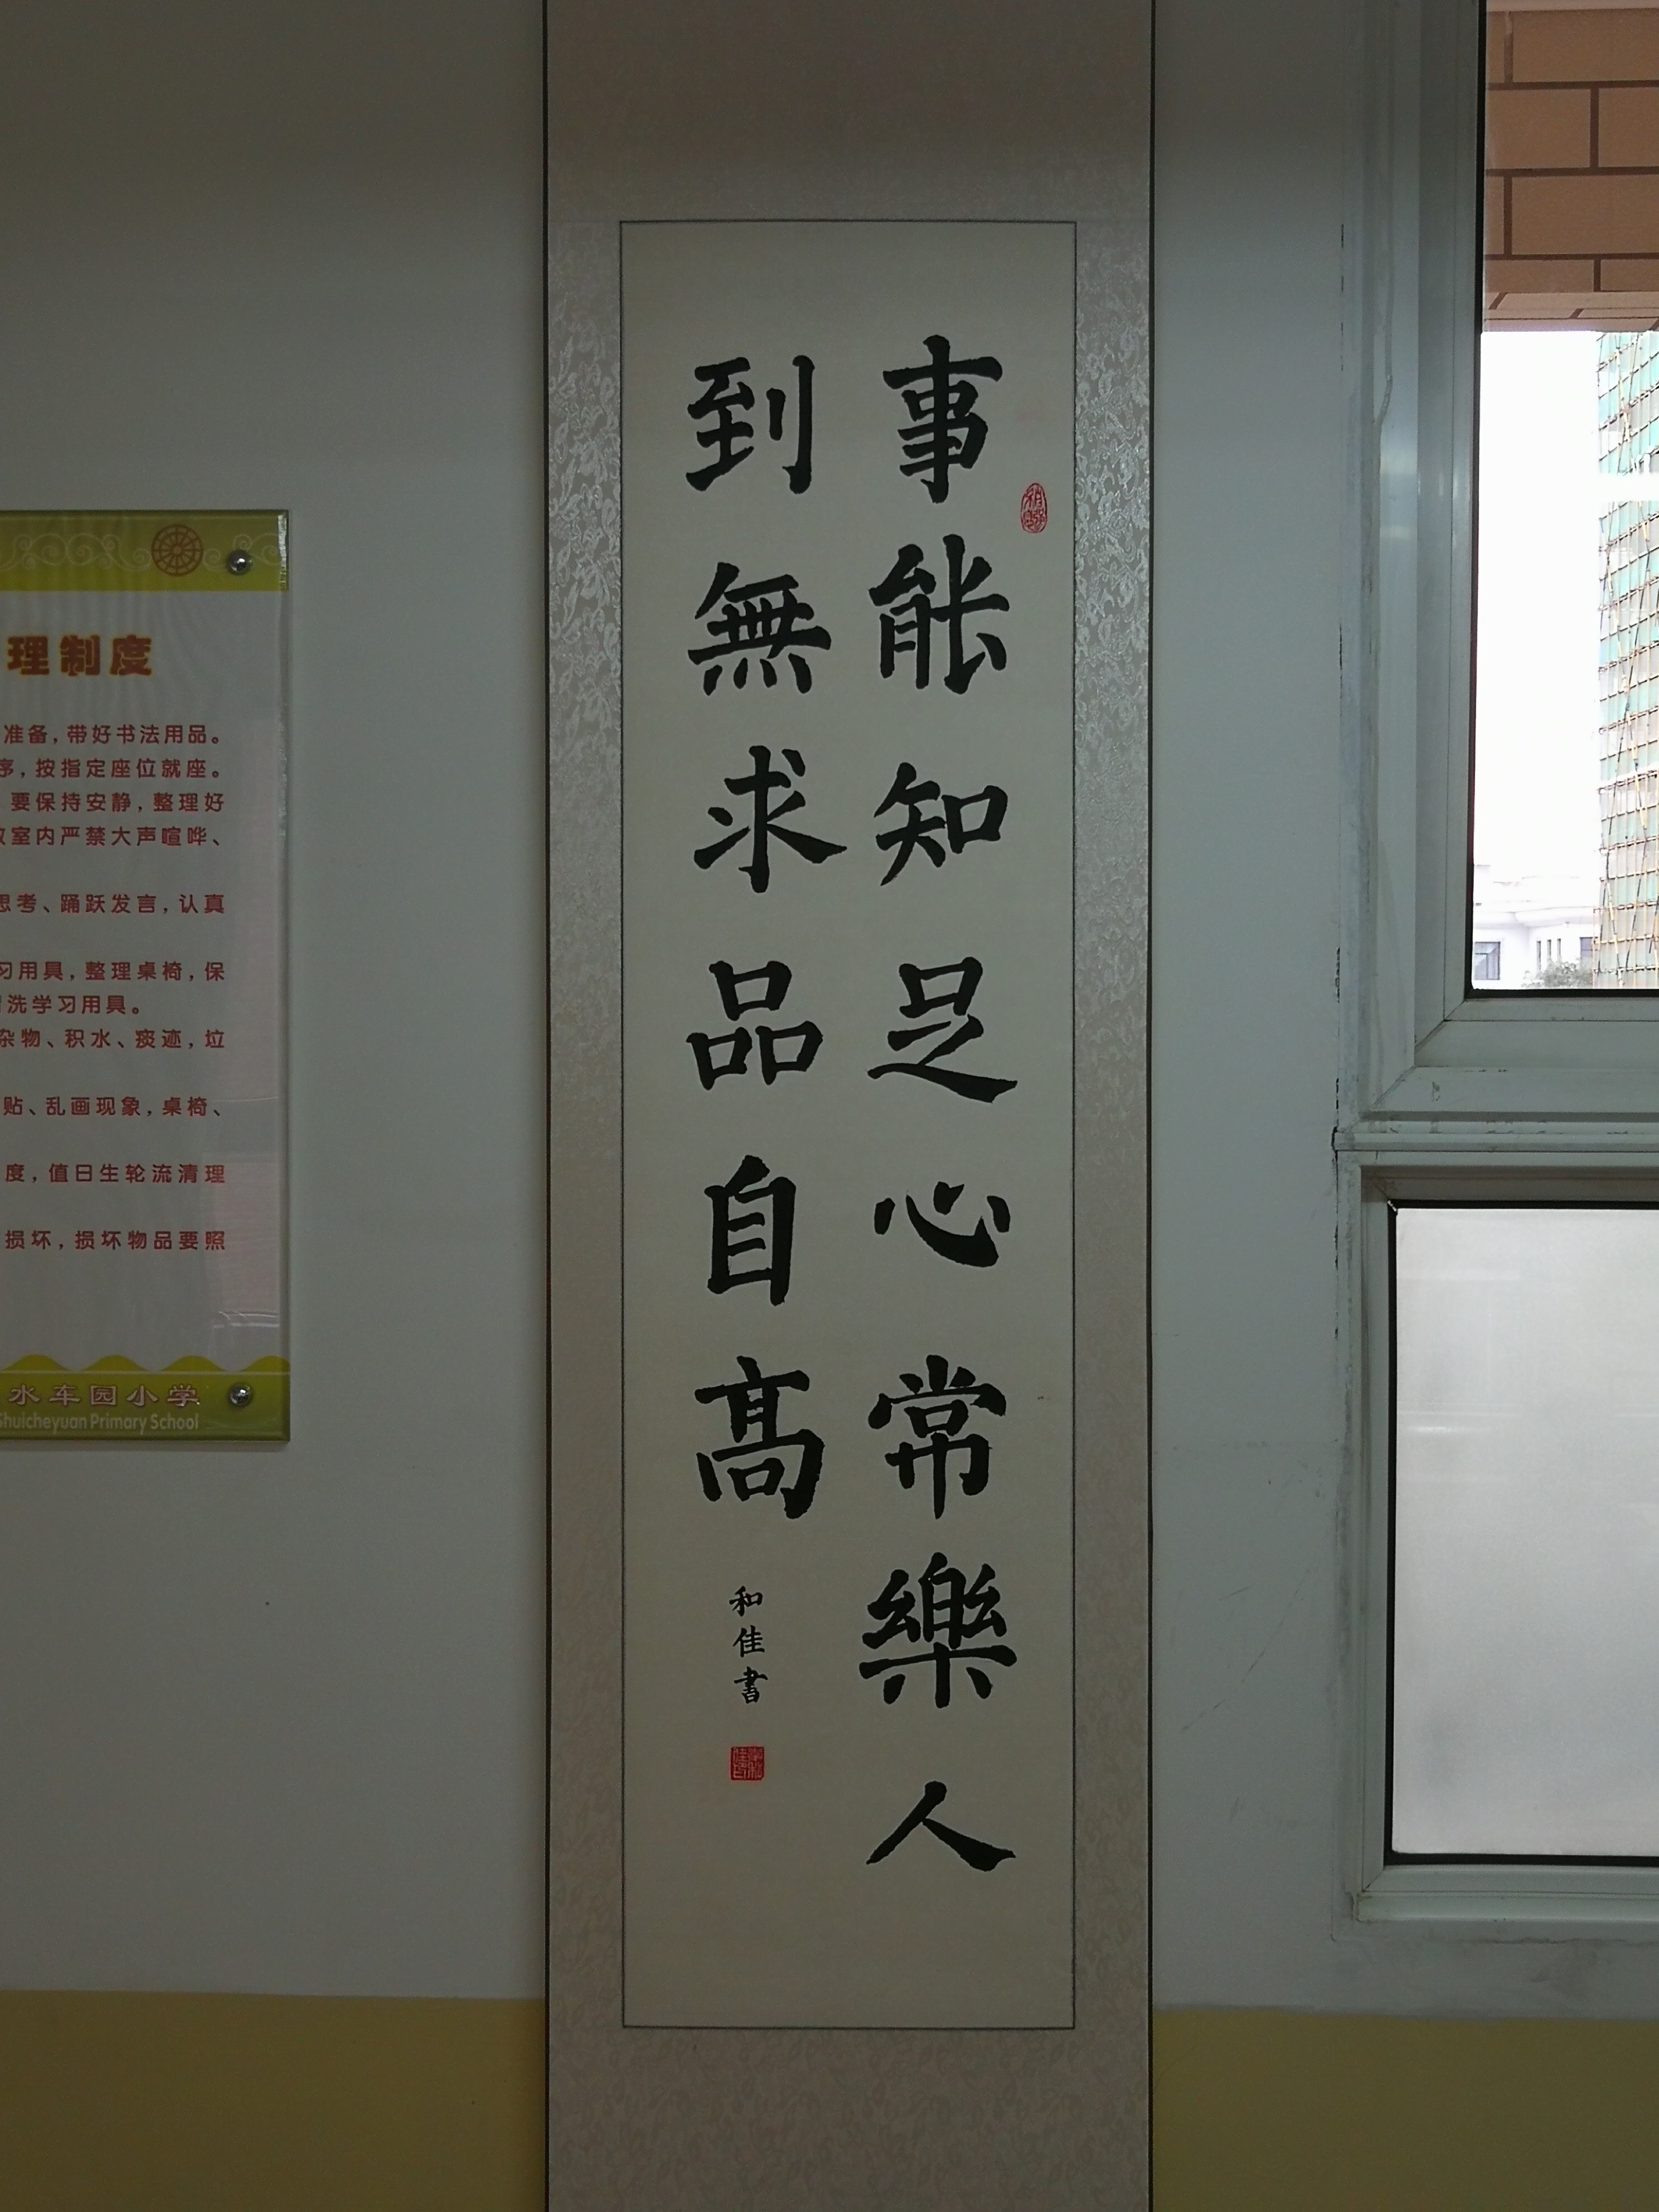 事能知足心常樂人
到無求品自高
和佳書
理制度
准备，带好书法用品。
序，按指定座位就座。
要保持安静，整理好
室内严禁大声喧哗、
思考、踊跃发言，认真
习用具，整理桌椅，保
洗学习用具。
杂物、积水、痰迹，垃
贴、乱画现象，桌椅、
度，值日生轮流清理
损坏，损坏物品要照
水车园小学
Shuicheyuan Primary School